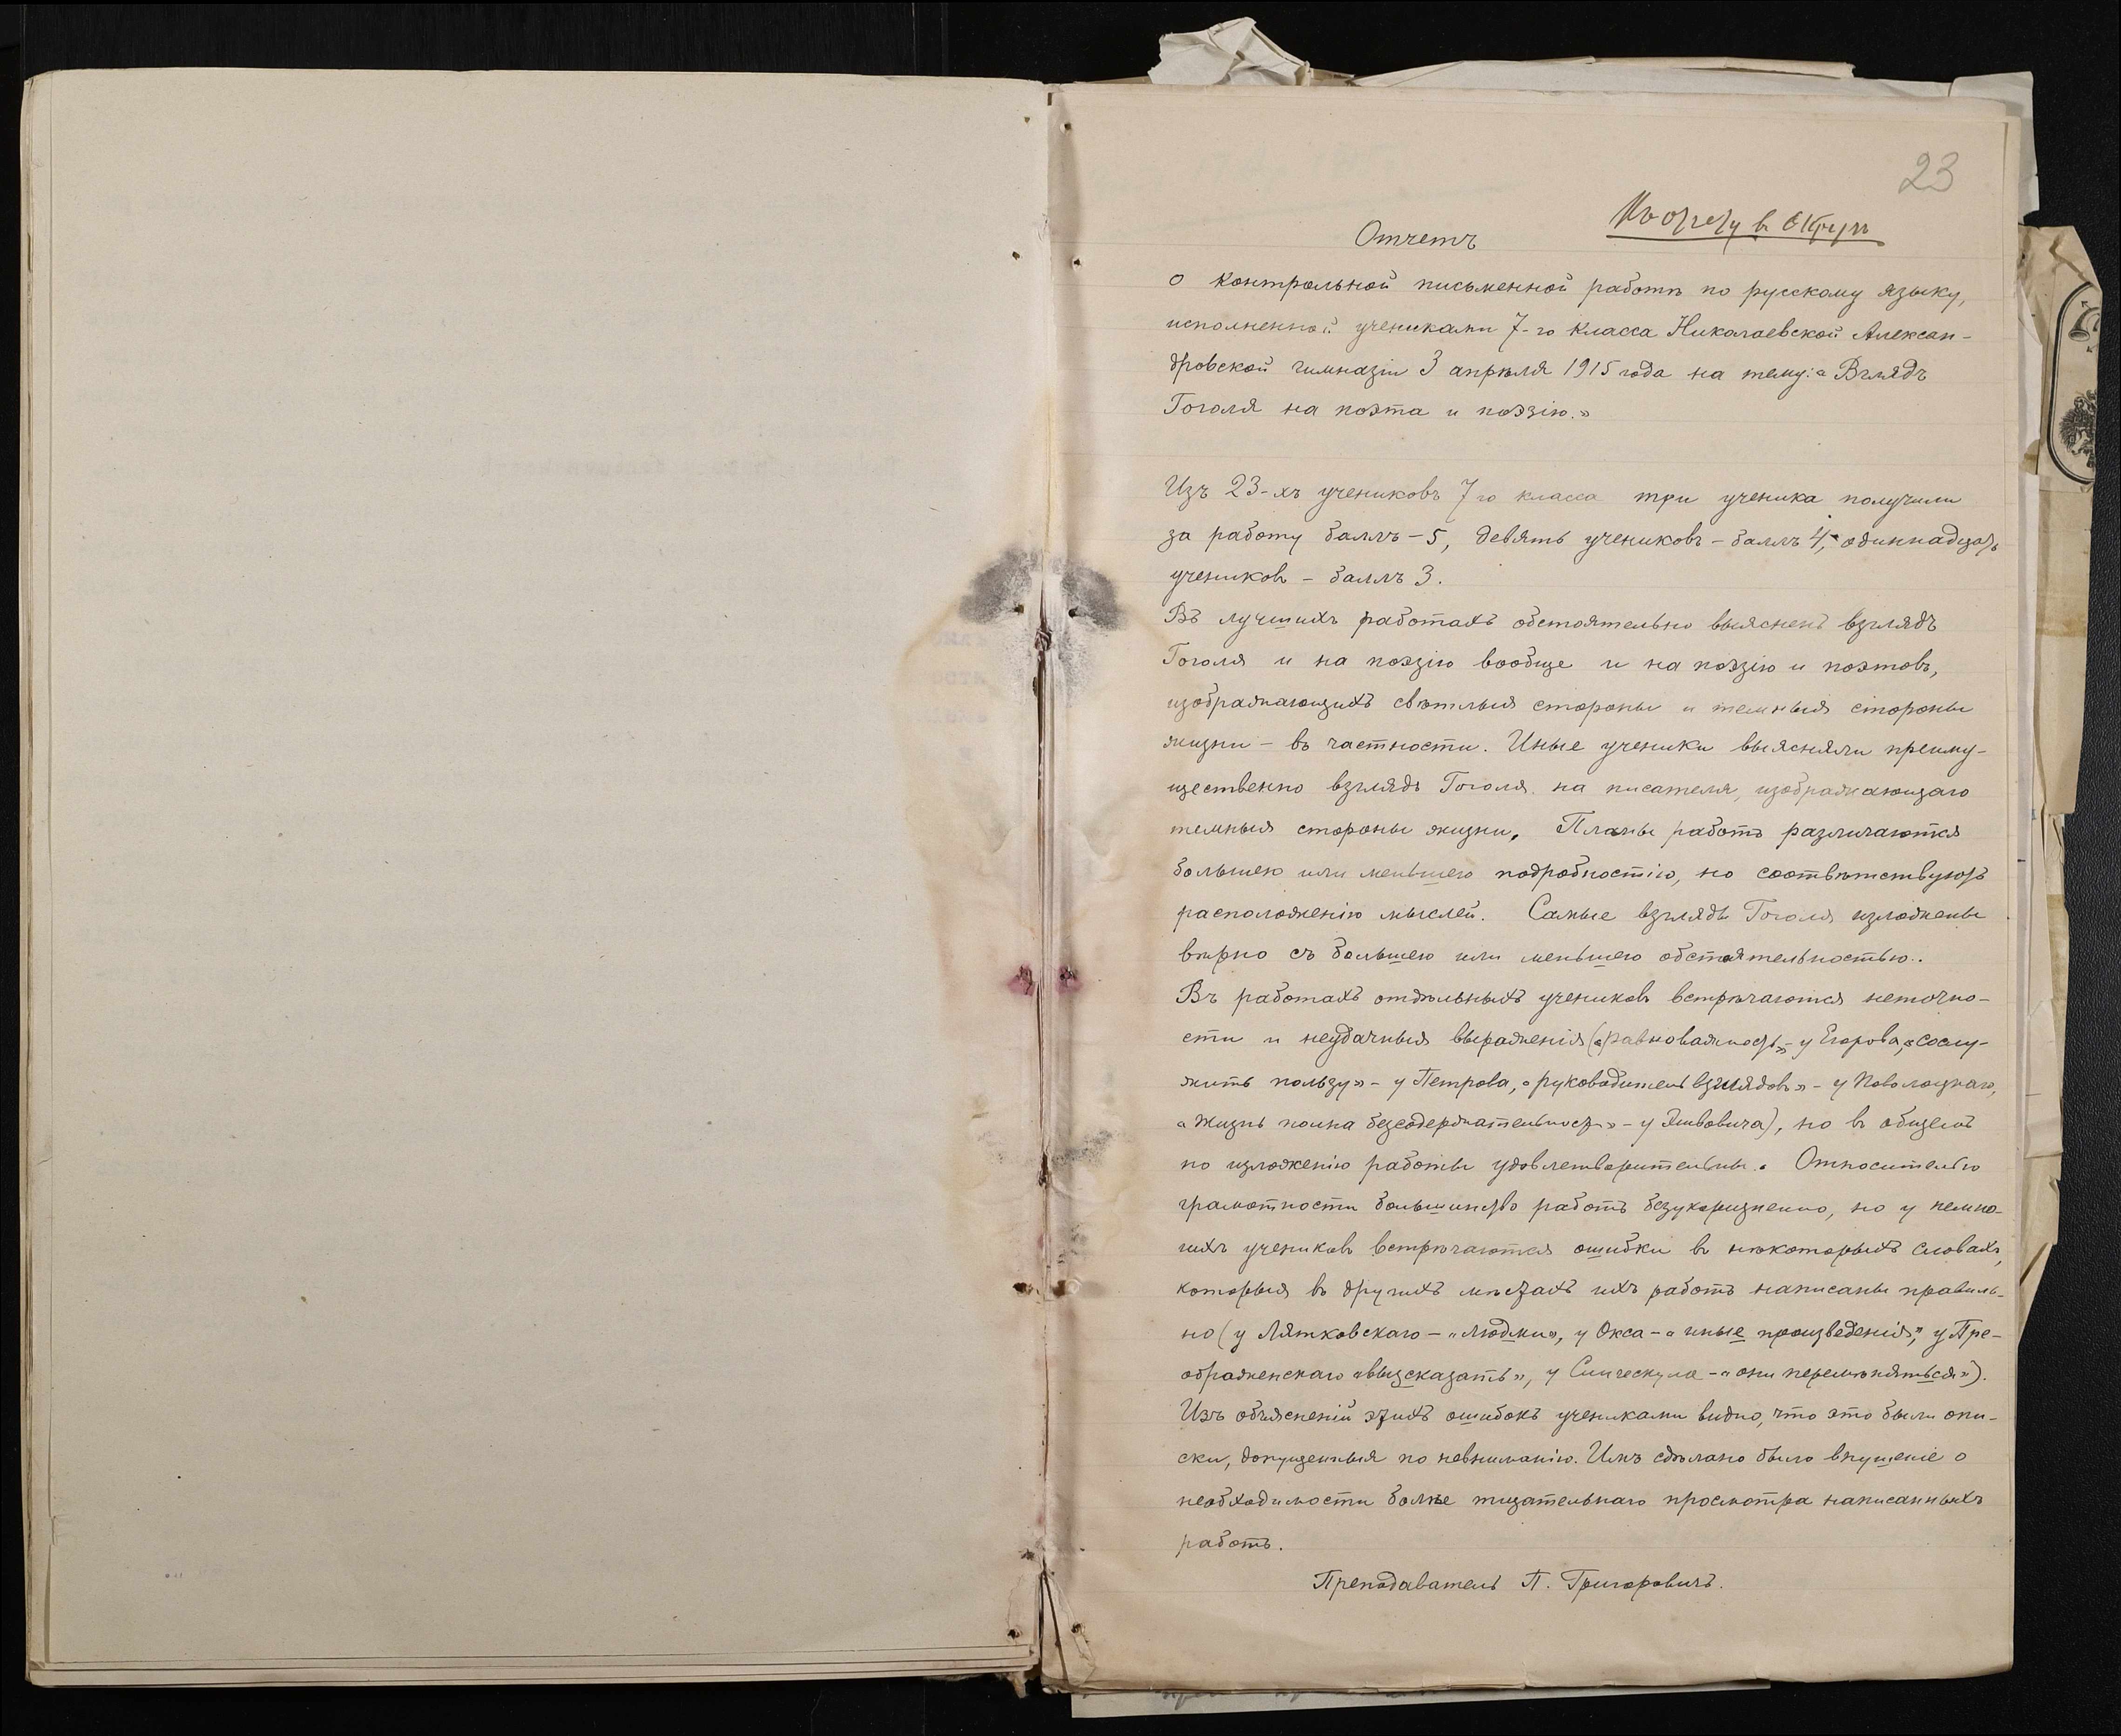 23
Къ отчету в Округъ
Отчетъ
о контрольной письменной работѣ по русскому языку,
исполненной учениками 7-го класса Николаевской Алексан-
дровской гимназіи 3 апрѣля 1915 года на тему: «Взглядъ
Гоголя на поэта и поэзію.»
Изъ 23-хъ учениковъ 7 го класса три ученика получили
за работу баллъ - 5, девять учениковъ - баллъ 4, одиннадцать
учениковъ - баллъ 3.
Въ лучшихъ работахъ обстоятельно выясненъ взглядъ
Гоголя и на поэзію вообще и на поэзію и поэтовъ,
изображающихъ свѣтлыя стороны и темныя стороны
жизни - въ частности. Иные ученики выясняли преиму-
щественно взглядъ Гоголя на писателя, изображающаго
темныя стороны жизни. Планы работъ различаются
большею или меньшею подробностію, но соотвѣтствуютъ
расположенію мыслей. Самые взгляды Гоголя изложены
вѣрно съ большею или меньшею обстоятельностью.
Въ работахъ отдѣльныхъ учениковъ встрѣчаются неточно-
сти и неудачныя выраженія («равноважность» - у Егорова, «сослу-
жить пользу» - у Петрова, «руководитель взглядовъ» - у Поволоцкаго,
«жизнь полна безсодержательности» - у), но въ общемъ
по изложенію работы удовлетворительны. Относительно
грамотности большинство работъ безукоризненно, но у немно-
гихъ учениковъ встрѣчаются ошибки въ нѣкоторыхъ словахъ,
которыя въ другихъ мѣстахъ ихъ работъ написаны правиль-
но (у Лятковскаго - «людми», у Окса - «иные произведенія», у Пре-
ображенскаго «вызсказать», у - «они перемѣняться»).
Изъ объясненій этихъ ошибокъ учениками видно, что это были опи-
ски, допущенныя по невниманію. Имъ сдѣлано было внушеніе о
необходимости болѣе тщательнаго просмотра написанныхъ
работъ.
Преподаватель П. Григоровичъ.